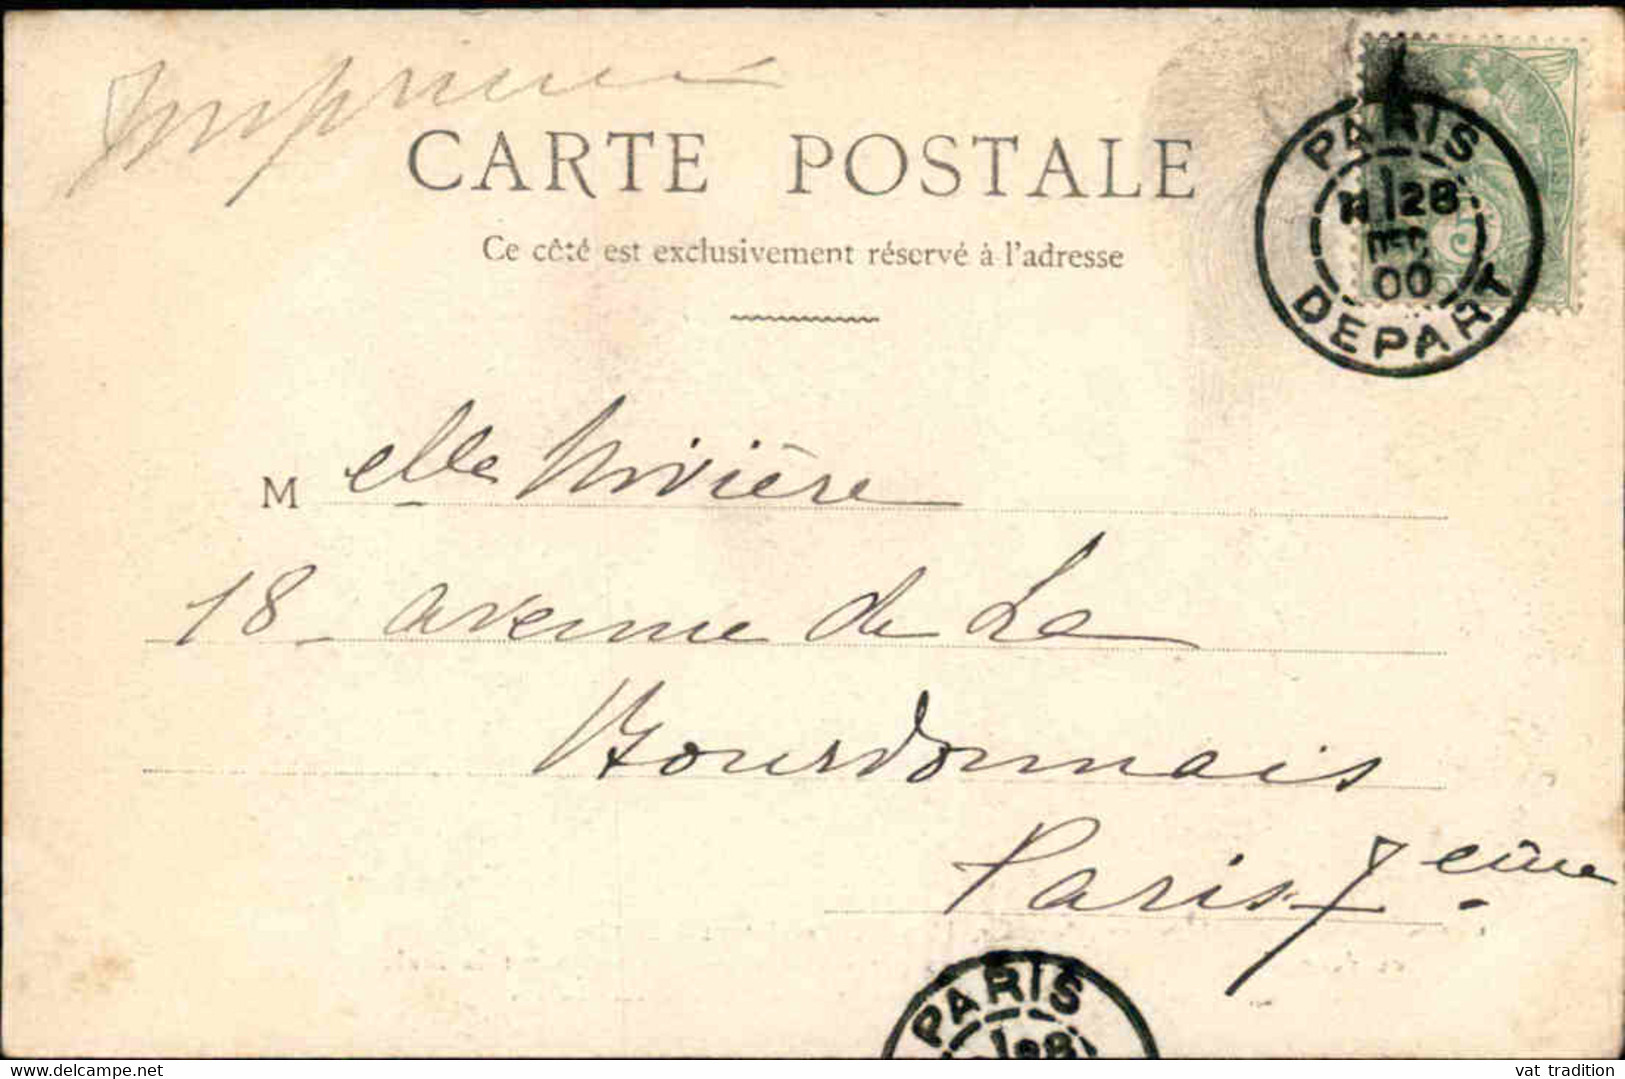 Imprimé
CARTE POSTALE
Ce côté est exclusivement réservé à l'adresse
PARIS
28
DEC
00
DEPART
5
M elle Rivière
18 avenue de La
Bourdonnais
Paris 7 eme
PARIS
28
vat tradition